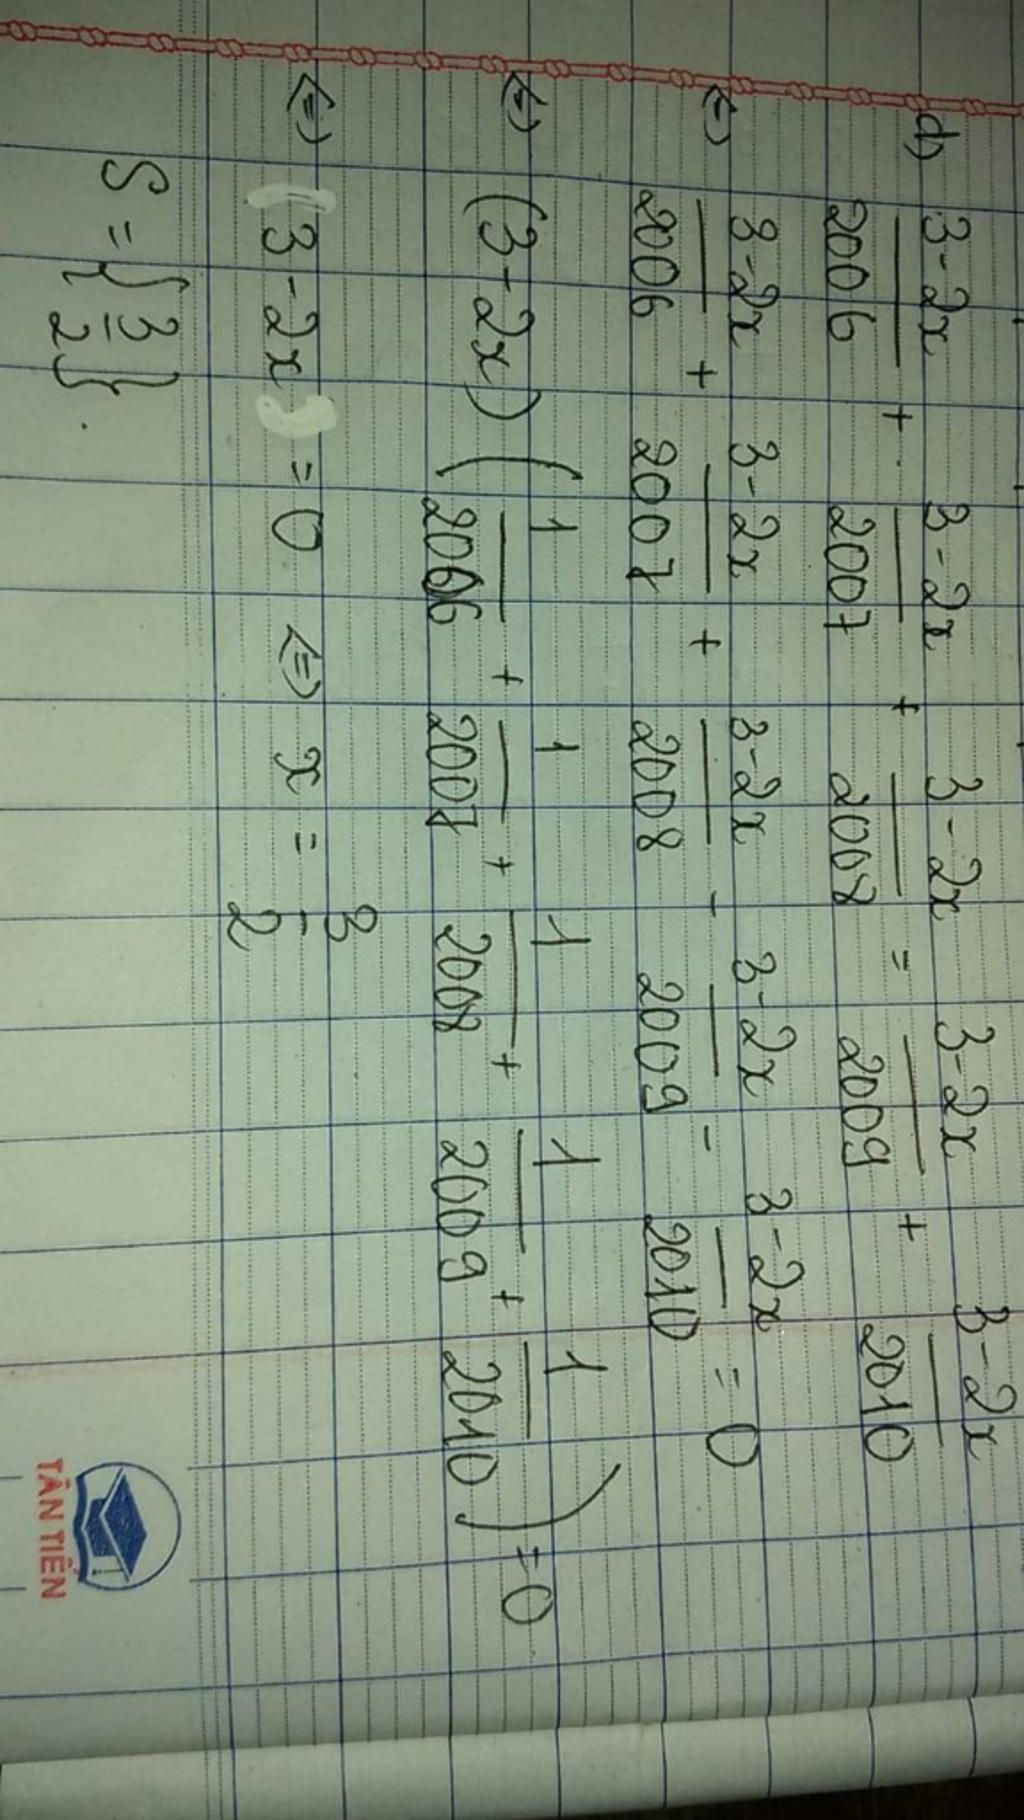 d) 3-2x/2006 + 3-2x/2007 + 3-2x/2008 = 3-2x/2009 + 3-2x/2010
<=> 3-2x/2006 + 3-2x/2007 + 3-2x/2008 - 3-2x/2009 - 3-2x/2010 = 0
<=> (3-2x) (1/2006 + 1/2007 + 1/2008 + 1/2009 + 1/2010) = 0
<=> (3-2x) = 0 <=> x = 3/2
S = {3/2}.
TÂN TIẾN